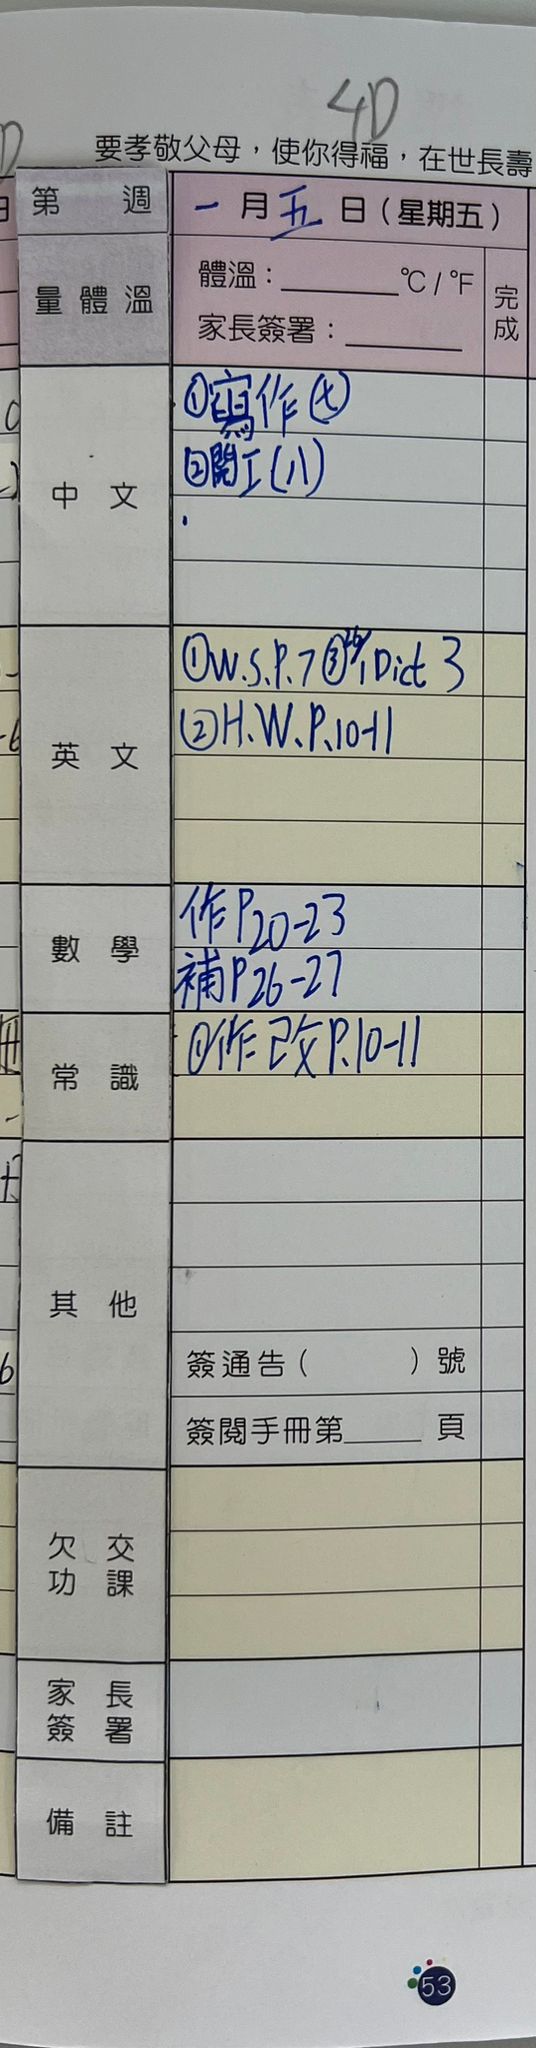 4D
要孝敬父母，使你得福，在世長壽
第 週
一月五日（星期五）
量體溫
體溫：______℃/℉
家長簽署：______
完成
中文
①寫作(七)
②閱工(八)
英文
①W.S.P.7 ③ Dict 3
②H.W.P.10-11
數學
作P20-23
補P26-27
常識
①作改P.10-11
其他
簽通告（ ）號
簽閱手冊第______頁
欠交功課
家長簽署
備註
53